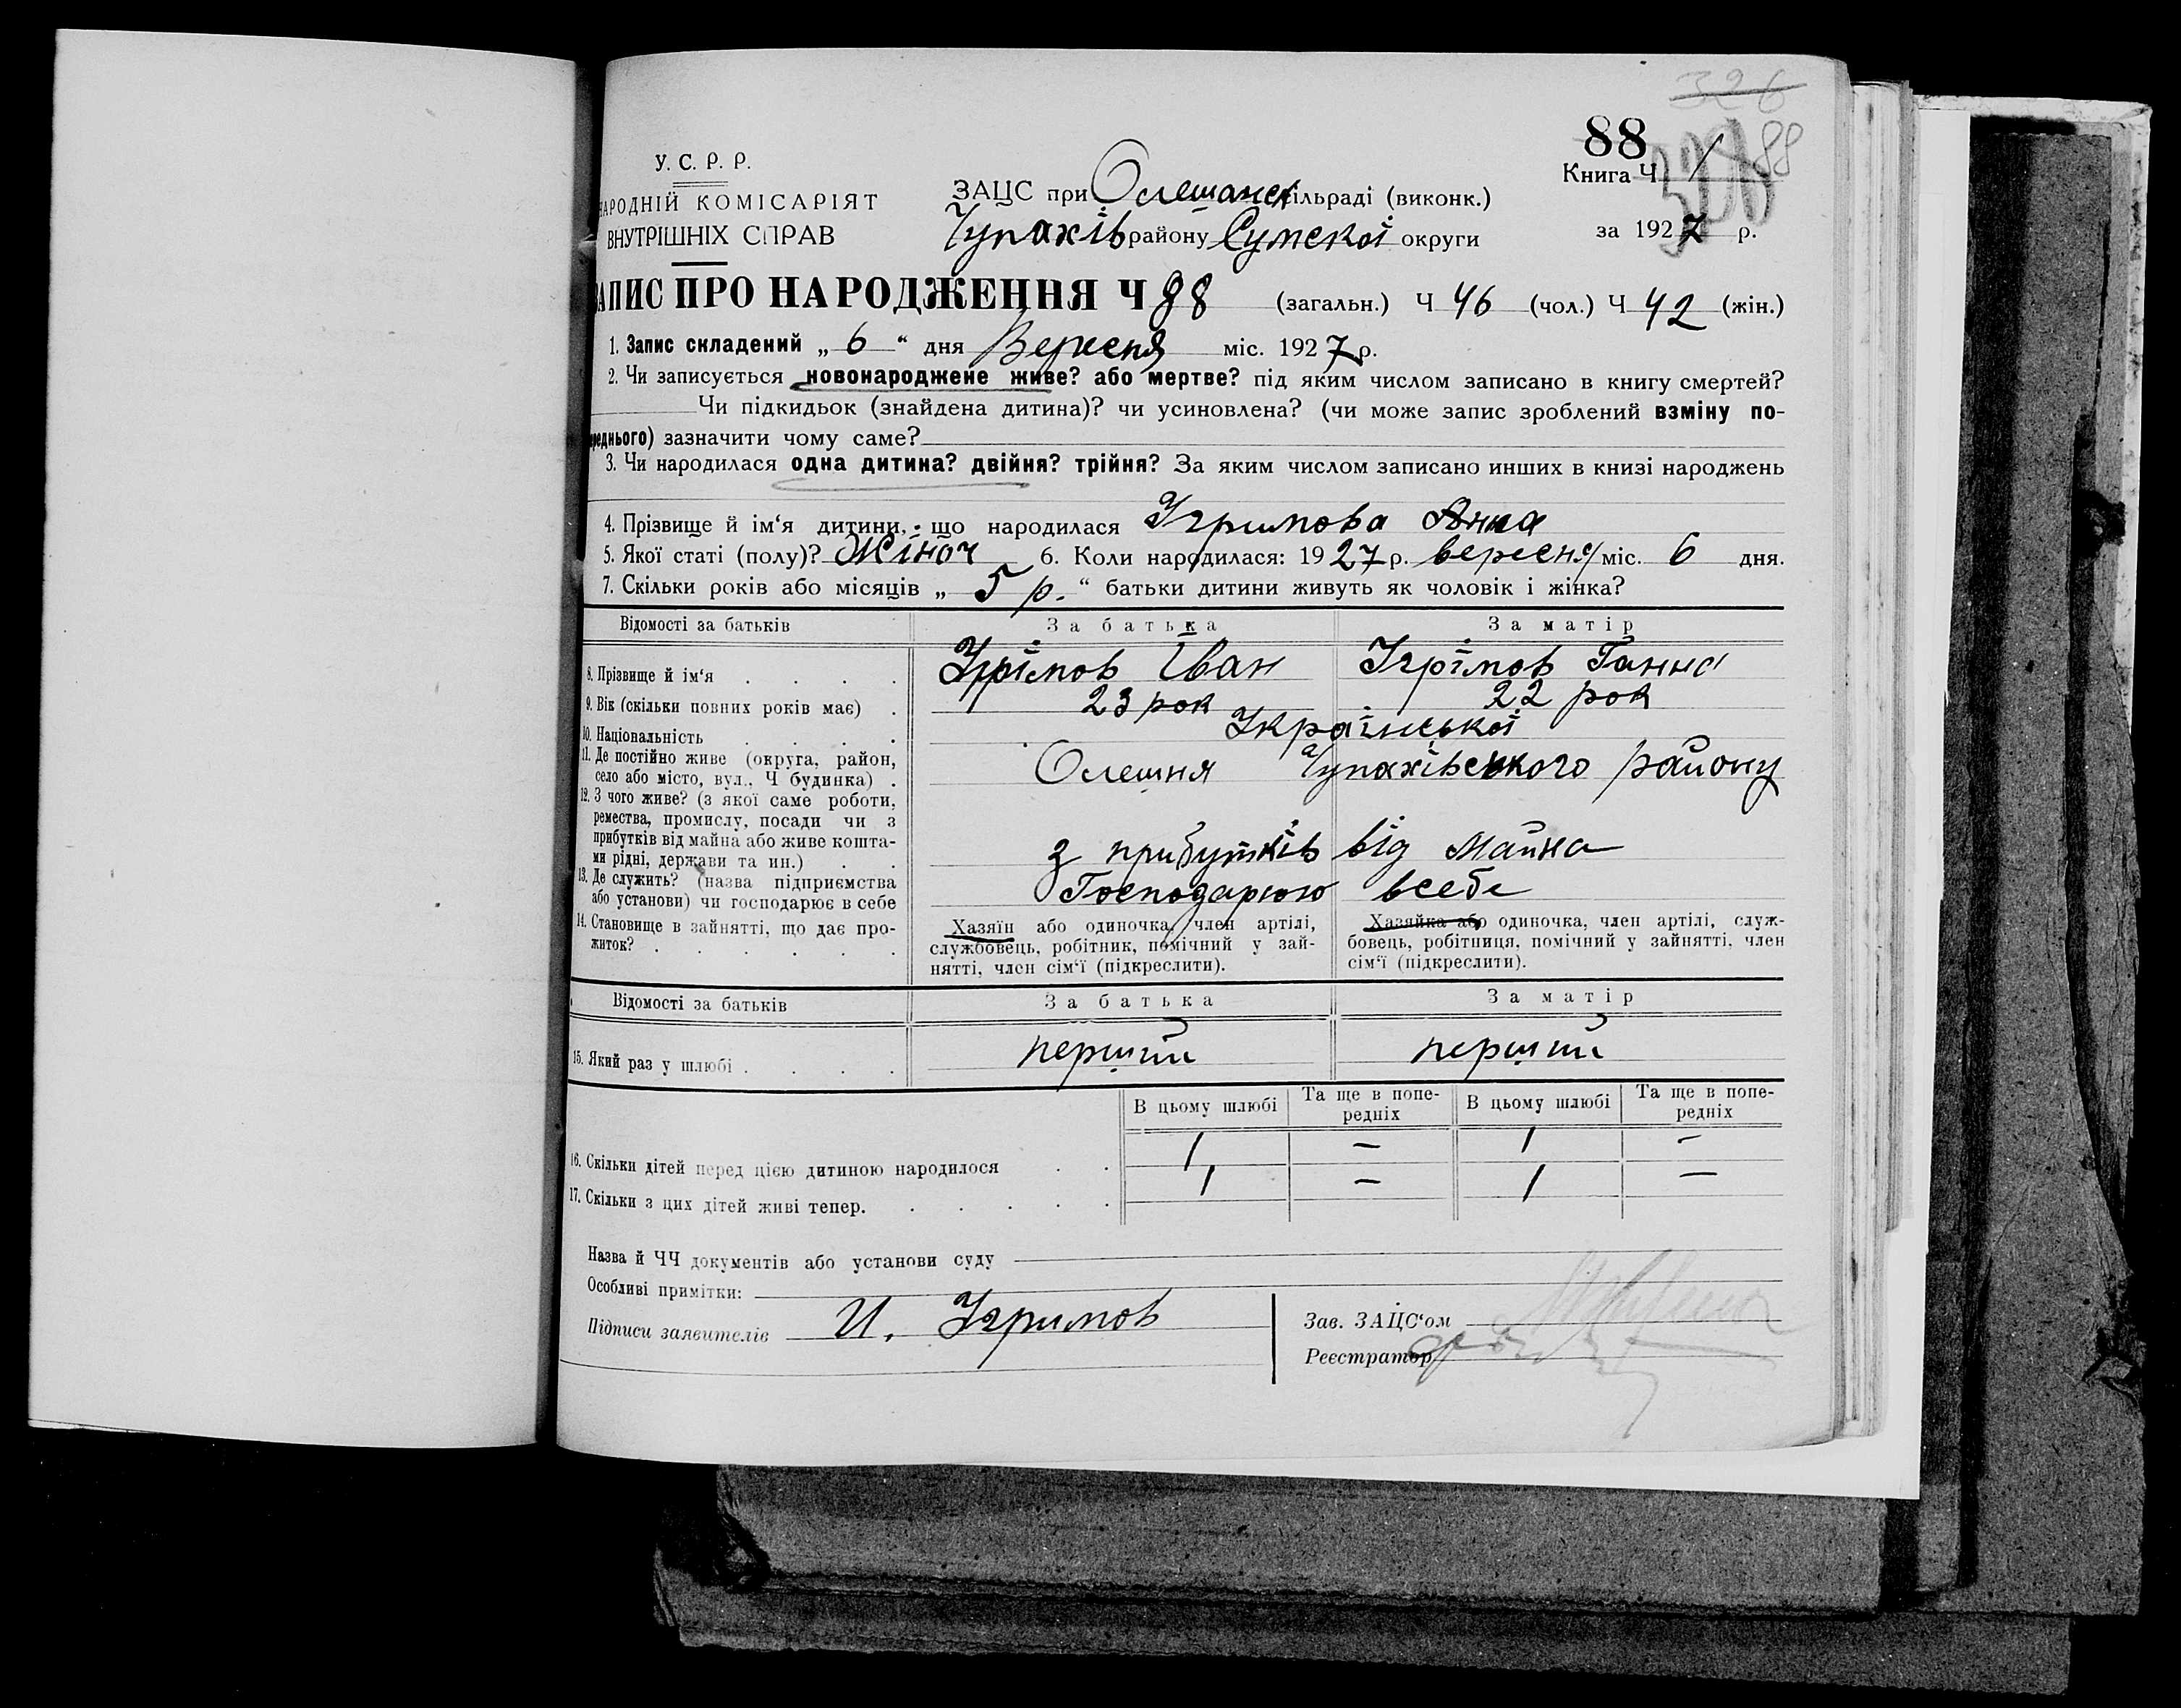 326
88
88
У. С. Р. Р.
НАРОДНІЙ КОМІСАРІЯТ
ВНУТРІШНІХ СПРАВ
ЗАЦС при Олешанск сільраді (виконк.)
Чупахів району Сумскої округи
Книга Ч 1
за 1927 р.
ЗАПИС ПРО НАРОДЖЕННЯ Ч 88 (загальн.) Ч 46 (чол.) Ч 42 (жін.)
1. Запис складений „ 6 “ дня Вересня міс. 1927 р.
2. Чи записується новонароджене живе? або мертве? під яким числом записано в книгу смертей?
Чи підкидьок (знайдена дитина)? чи усиновлена? (чи може запис зроблений взміну по-
реднього) зазначити чому саме?
3. Чи народилася одна дитина? двійня? трійня? За яким числом записано инших в книзі народжень
4. Прізвище й ім‘я дитини, що народилася Угримова Анна
5. Якої статі (полу)? Жіноч 6. Коли народилася: 1927 р. вересня міс. 6 дня.
7. Скільки років або місяців „ 5 р. “ батьки дитини живуть як чоловік і жінка?
Відомості за батьків За батька За матір
8. Прізвище й ім‘я . . . . Угрімов Іван Угрімов Ганна
9. Вік (скільки повних років має) . 23 рок 22 рок
10. Національність . . . . Української
11. Де постійно живе (округа, район,
село або місто, вул., Ч будинка) . Олешня Чупахівського району
12. З чого живе? (з якої саме роботи,
ремества, промислу, посади чи з
прибутків від майна або живе кошта-
ми рідні, держави та ин.) . . з прибутків від майна
13. Де служить? (назва підприємства
або установи) чи господарює в себе Господарюю всебе
14. Становище в зайнятті, що дає про-
житок? . . . . . .
Хазяїн або одиночка, член артілі,
службовець, робітник, помічний у зай-
нятті, член сім‘ї (підкреслити).
Хазяйка або одиночка, член артілі, служ-
бовець, робітниця, помічний у зайнятті, член
сім‘ї (підкреслити).
Відомості за батьків За батька За матір
15. Який раз у шлюбі . . . . перший перший
В цьому шлюбі Та ще в попе-
редніх В цьому шлюбі Та ще в попе-
редніх
16. Скільки дітей перед цією дитиною народилося . . 1 – 1 –
17. Скільки з цих дітей живі тепер. . . . . . 1 – 1 –
Назва й ЧЧ документів або установи суду
Особливі примітки:
Підписи заявителів И. Угримов
Зав. ЗАЦС‘ом
Реєстратор